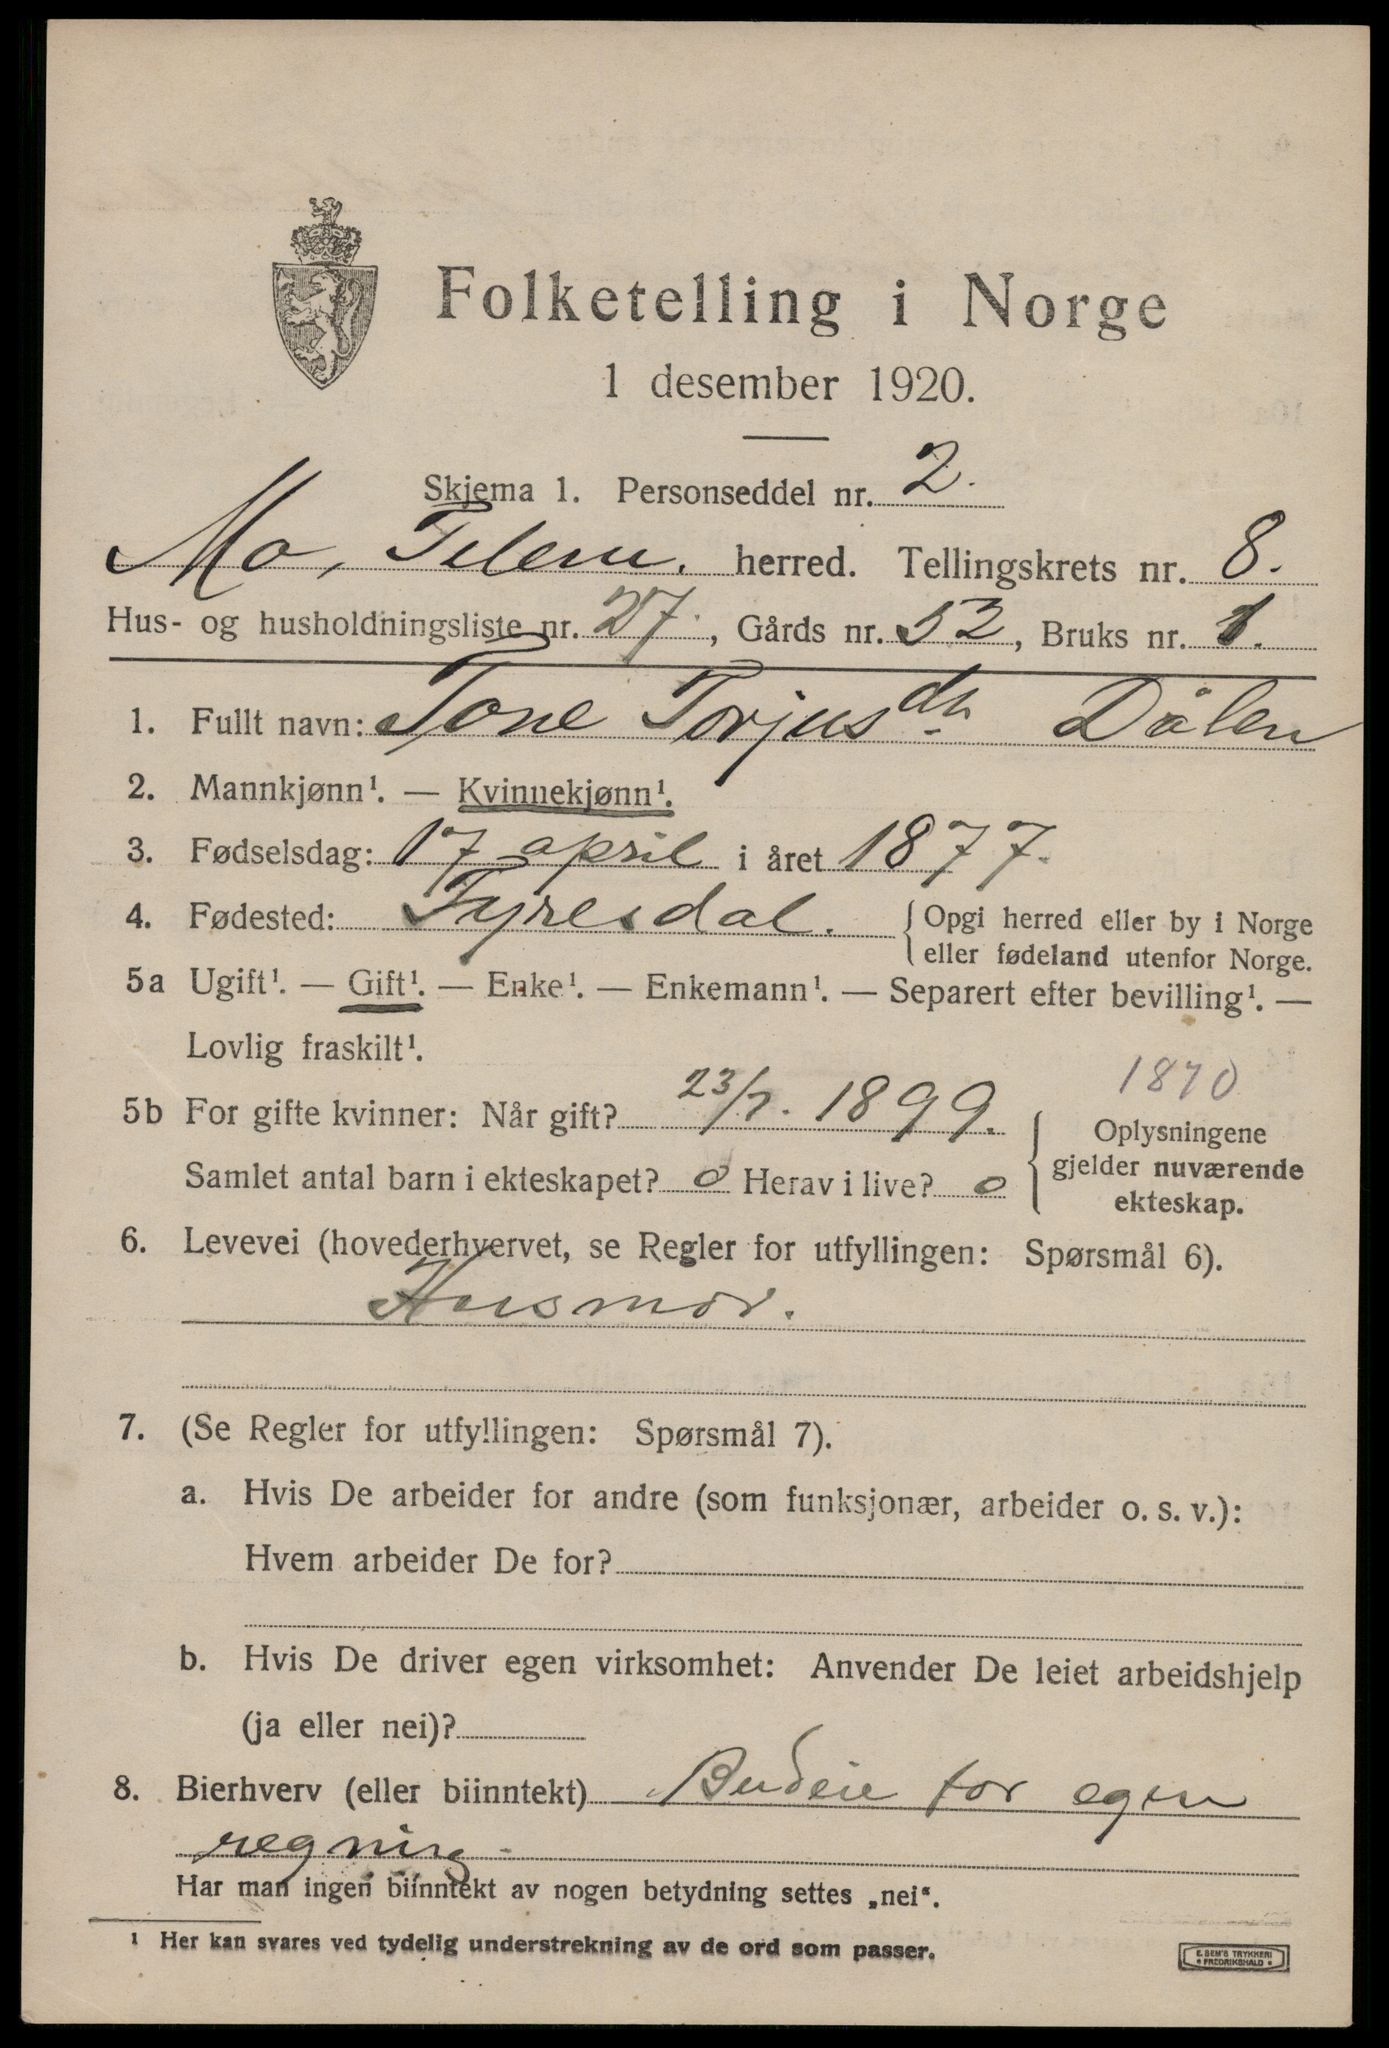 Folketelling i Norge
1 desember 1920.
Skjema 1. Personseddel nr. 2.
Mo, Telem. herred. Tellingskrets nr. 8.
Hus- og husholdningsliste nr. 27., Gårds nr. 53, Bruks nr. 1.
1. Fullt navn: Tone Torjusdtr. Dålen
2. Mannkjønn¹. — Kvinnekjønn¹.
3. Fødselsdag: 17 april i året 1877.
4. Fødested: Fyresdal. Opgi herred eller by i Norge
eller fødeland utenfor Norge.
5a Ugift¹. — Gift¹. — Enke¹. — Enkemann¹. — Separert efter bevilling¹. —
Lovlig fraskilt¹.
1870
5b For gifte kvinner: Når gift? 23/7. 1899. Oplysningene
gjelder nuværende
Samlet antal barn i ekteskapet? 0 Herav i live? 0 ekteskap.
6. Levevei (hovederhvervet, se Regler for utfyllingen: Spørsmål 6).
Husmor.
7. (Se Regler for utfyllingen: Spørsmål 7).
a. Hvis De arbeider for andre (som funksjonær, arbeider o. s. v.):
Hvem arbeider De for?
b. Hvis De driver egen virksomhet: Anvender De leiet arbeidshjelp
(ja eller nei)?
8. Bierhverv (eller biinntekt) Budeie for egen
regning.
Har man ingen biinntekt av nogen betydning settes „nei“.
¹ Her kan svares ved tydelig understrekning av de ord som passer.
E. SEM'S TRYKKERI
FREDRIKSHALD